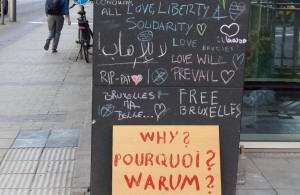 ALL LOVE LIBERTY &
SOLIDARITY
LOVE
لا للإرهاب
LOVE WILL
PREVAIL
R-I-P
BRUXELLES
MA
BELLE...
FREE
BRUXELLES
WHY?
POURQUOI?
WARUM?